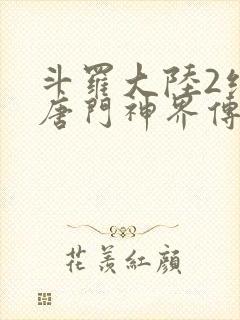 斗羅大陸2絕
唐門神界傳
花羨紅顏